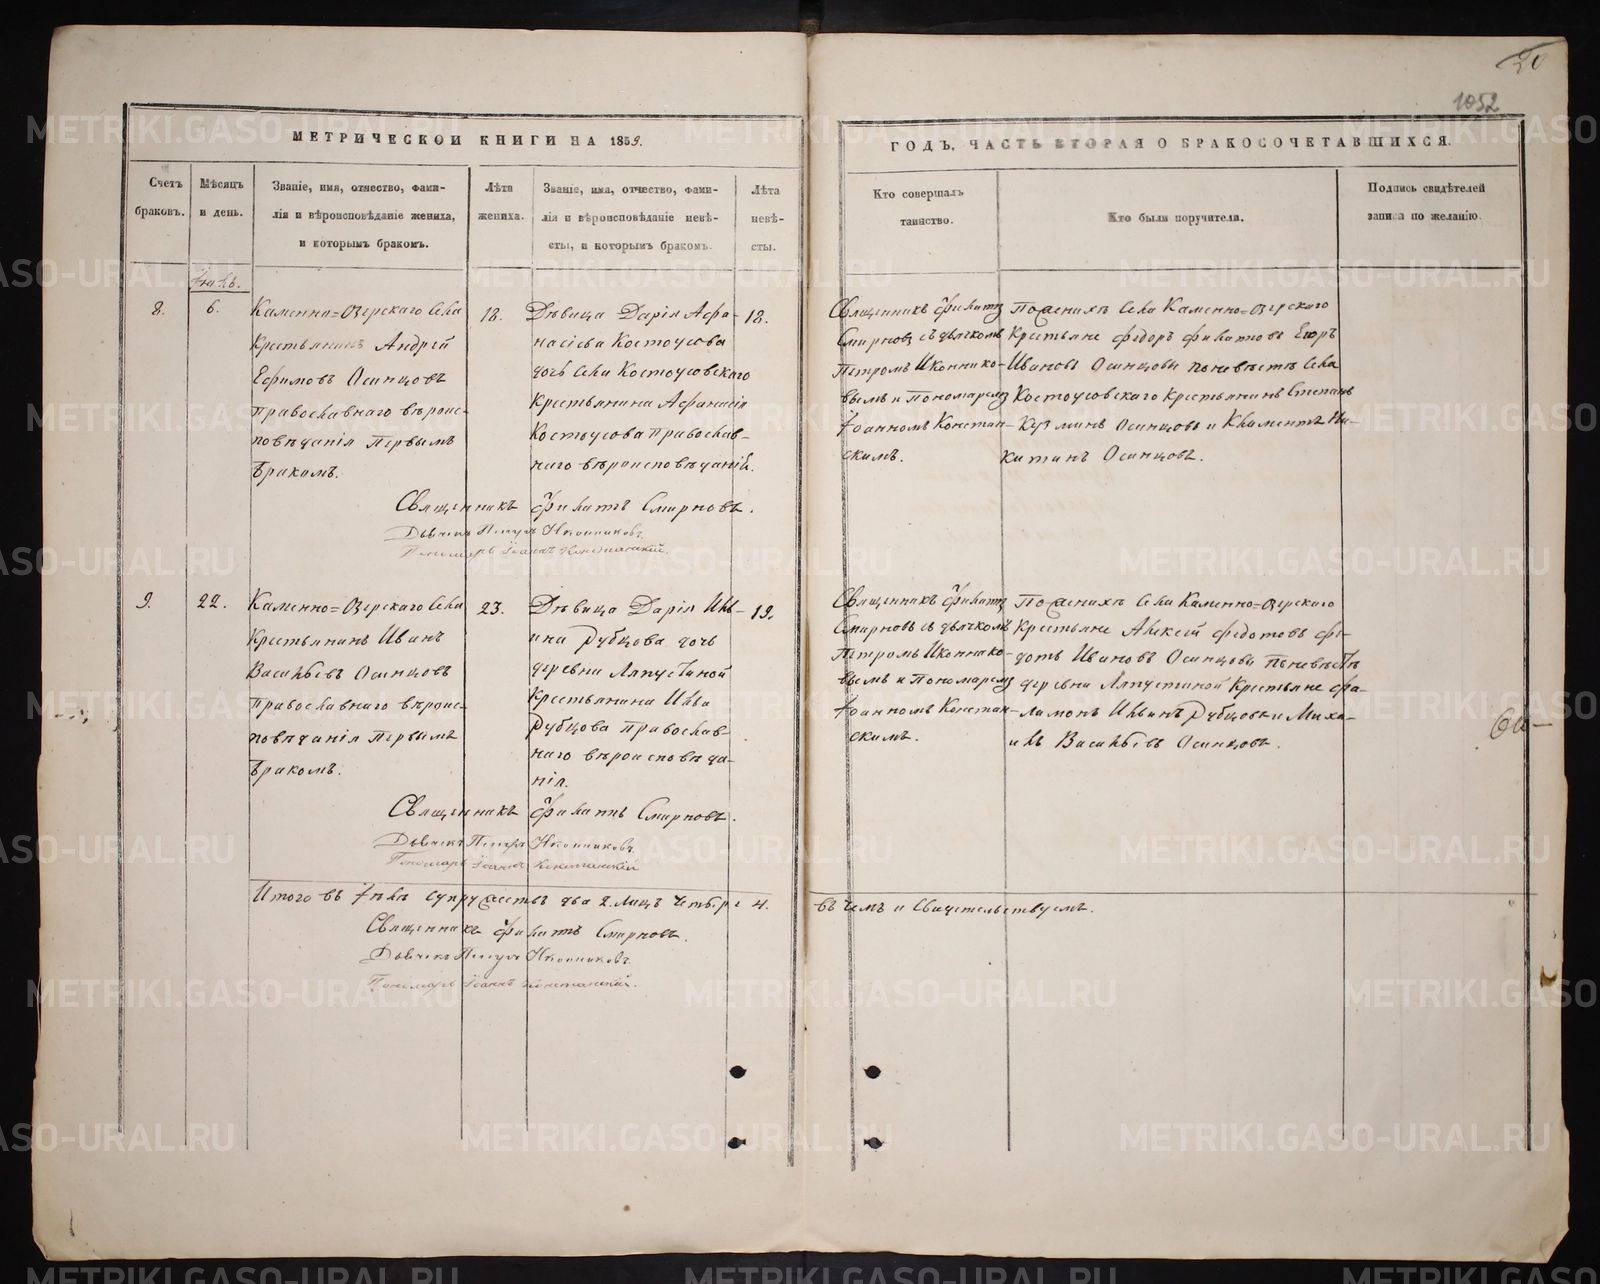 20
1052
МЕТРИЧЕСКОЙ КНИГИ НА 1859.
ГОДЪ, ЧАСТЬ ВТОРАЯ О БРАКОСОЧЕТАВШИХСЯ.
Счетъ браковъ.
Мѣсяцъ и день.
Званіе, имя, отчество, фами-
лія и вѣроисповѣданіе жениха,
и которымъ бракомъ.
Лѣта
жениха.
Званіе, имя, отчество, фами-
лія и вѣроисповѣданіе невѣ-
сты, и которымъ бракомъ.
Лѣта
невѣ-
сты.
Кто совершалъ
таинство.
Кто были поручители.
Подпись свидѣтелей
записи по желанію.
Іюль.
8.
6.
Каменно=Озерскаго Села
Крестьянинъ Андрей
Ефимовъ Осинцовъ
православнаго вѣроис-
повѣданія Первымъ
бракомъ.
18.
Дѣвица Дарія Афа-
насіева Костоусова
дочь Села Костоусовскаго
Крестьянина Афанасія
Костоусова православ-
наго вѣроисповѣданій.
18.
Священникъ Филатъ
Смирновъ съ дьячкомъ
Петромъ Иконнико-
вымъ и Пономаремъ
Іоанномъ Констан-
скимъ.
По женихѣ Села Каменно=Озерскаго
Крестьяне Федоръ Филатовъ Егоръ
Ивановъ Осинцовы по невѣстѣ Села
Костоусовскаго Крестьянинъ Степанъ
Кузминъ Осинцовъ и Климентъ Ни-
китинъ Осинцовъ.
Священникъ Филатъ Смирновъ.
Дьячекъ Петръ Иконниковъ
Пономарь Іоаннъ Констанскій.
9.
22.
Каменно=Озерскаго Села
Крестьянинъ Иванъ
Васильевъ Осинцовъ
Православнаго вѣроис-
повѣданія Первымъ
бракомъ.
23.
Дѣвица Дарія Иль-
ина Рубцова дочь
деревни Ляпустиной
Крестьянина Ильи
Рубцова Православ-
наго вѣроисповѣда-
нія.
19.
Священникъ Филатъ
Смирновъ съ дьячкомъ
Петромъ Иконнико-
вымъ и Пономаремъ
Іоанномъ Констан-
скимъ.
По женихѣ Села Каменно=Озерскаго
Крестьяне Алексей Федотовъ Фе-
дотъ Ивановъ Осинцовы по невѣстѣ
деревни Ляпустиной Крестьяне Фи-
лимонъ Ильинъ Рубцовъ и Миха-
илъ Васильевъ Осинцовъ.
Священникъ Филатъ Смирновъ.
Дьячекъ Петръ Иконниковъ
Пономарь Іоаннъ Констанскій
Итого въ Іюлѣ супружествъ два 2. Лицъ Четыре 4.
въ чемъ и Свидетельствуемъ.
Священникъ Филатъ Смирновъ.
Дьячекъ Петръ Иконниковъ
Пономарь Іоаннъ Констанскій.
METRIKI.GASO-URAL.RU